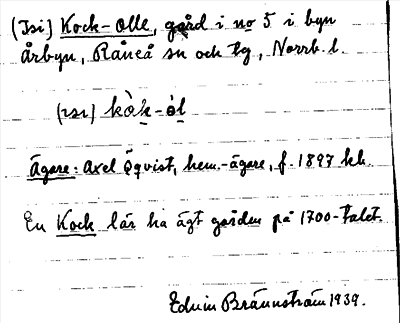 (Isi) Kock-Olle, gård i no 5 i byn
Årbyn, Råneå sn och tg, Norrb. l.
(ısı) kòk-òl
Ägare: Axel Öqvist, hem.-ägare, f. 1897 hh.
En Kock lär ha ägt gården på 1700-talet.
Edvin Brännström 1939.